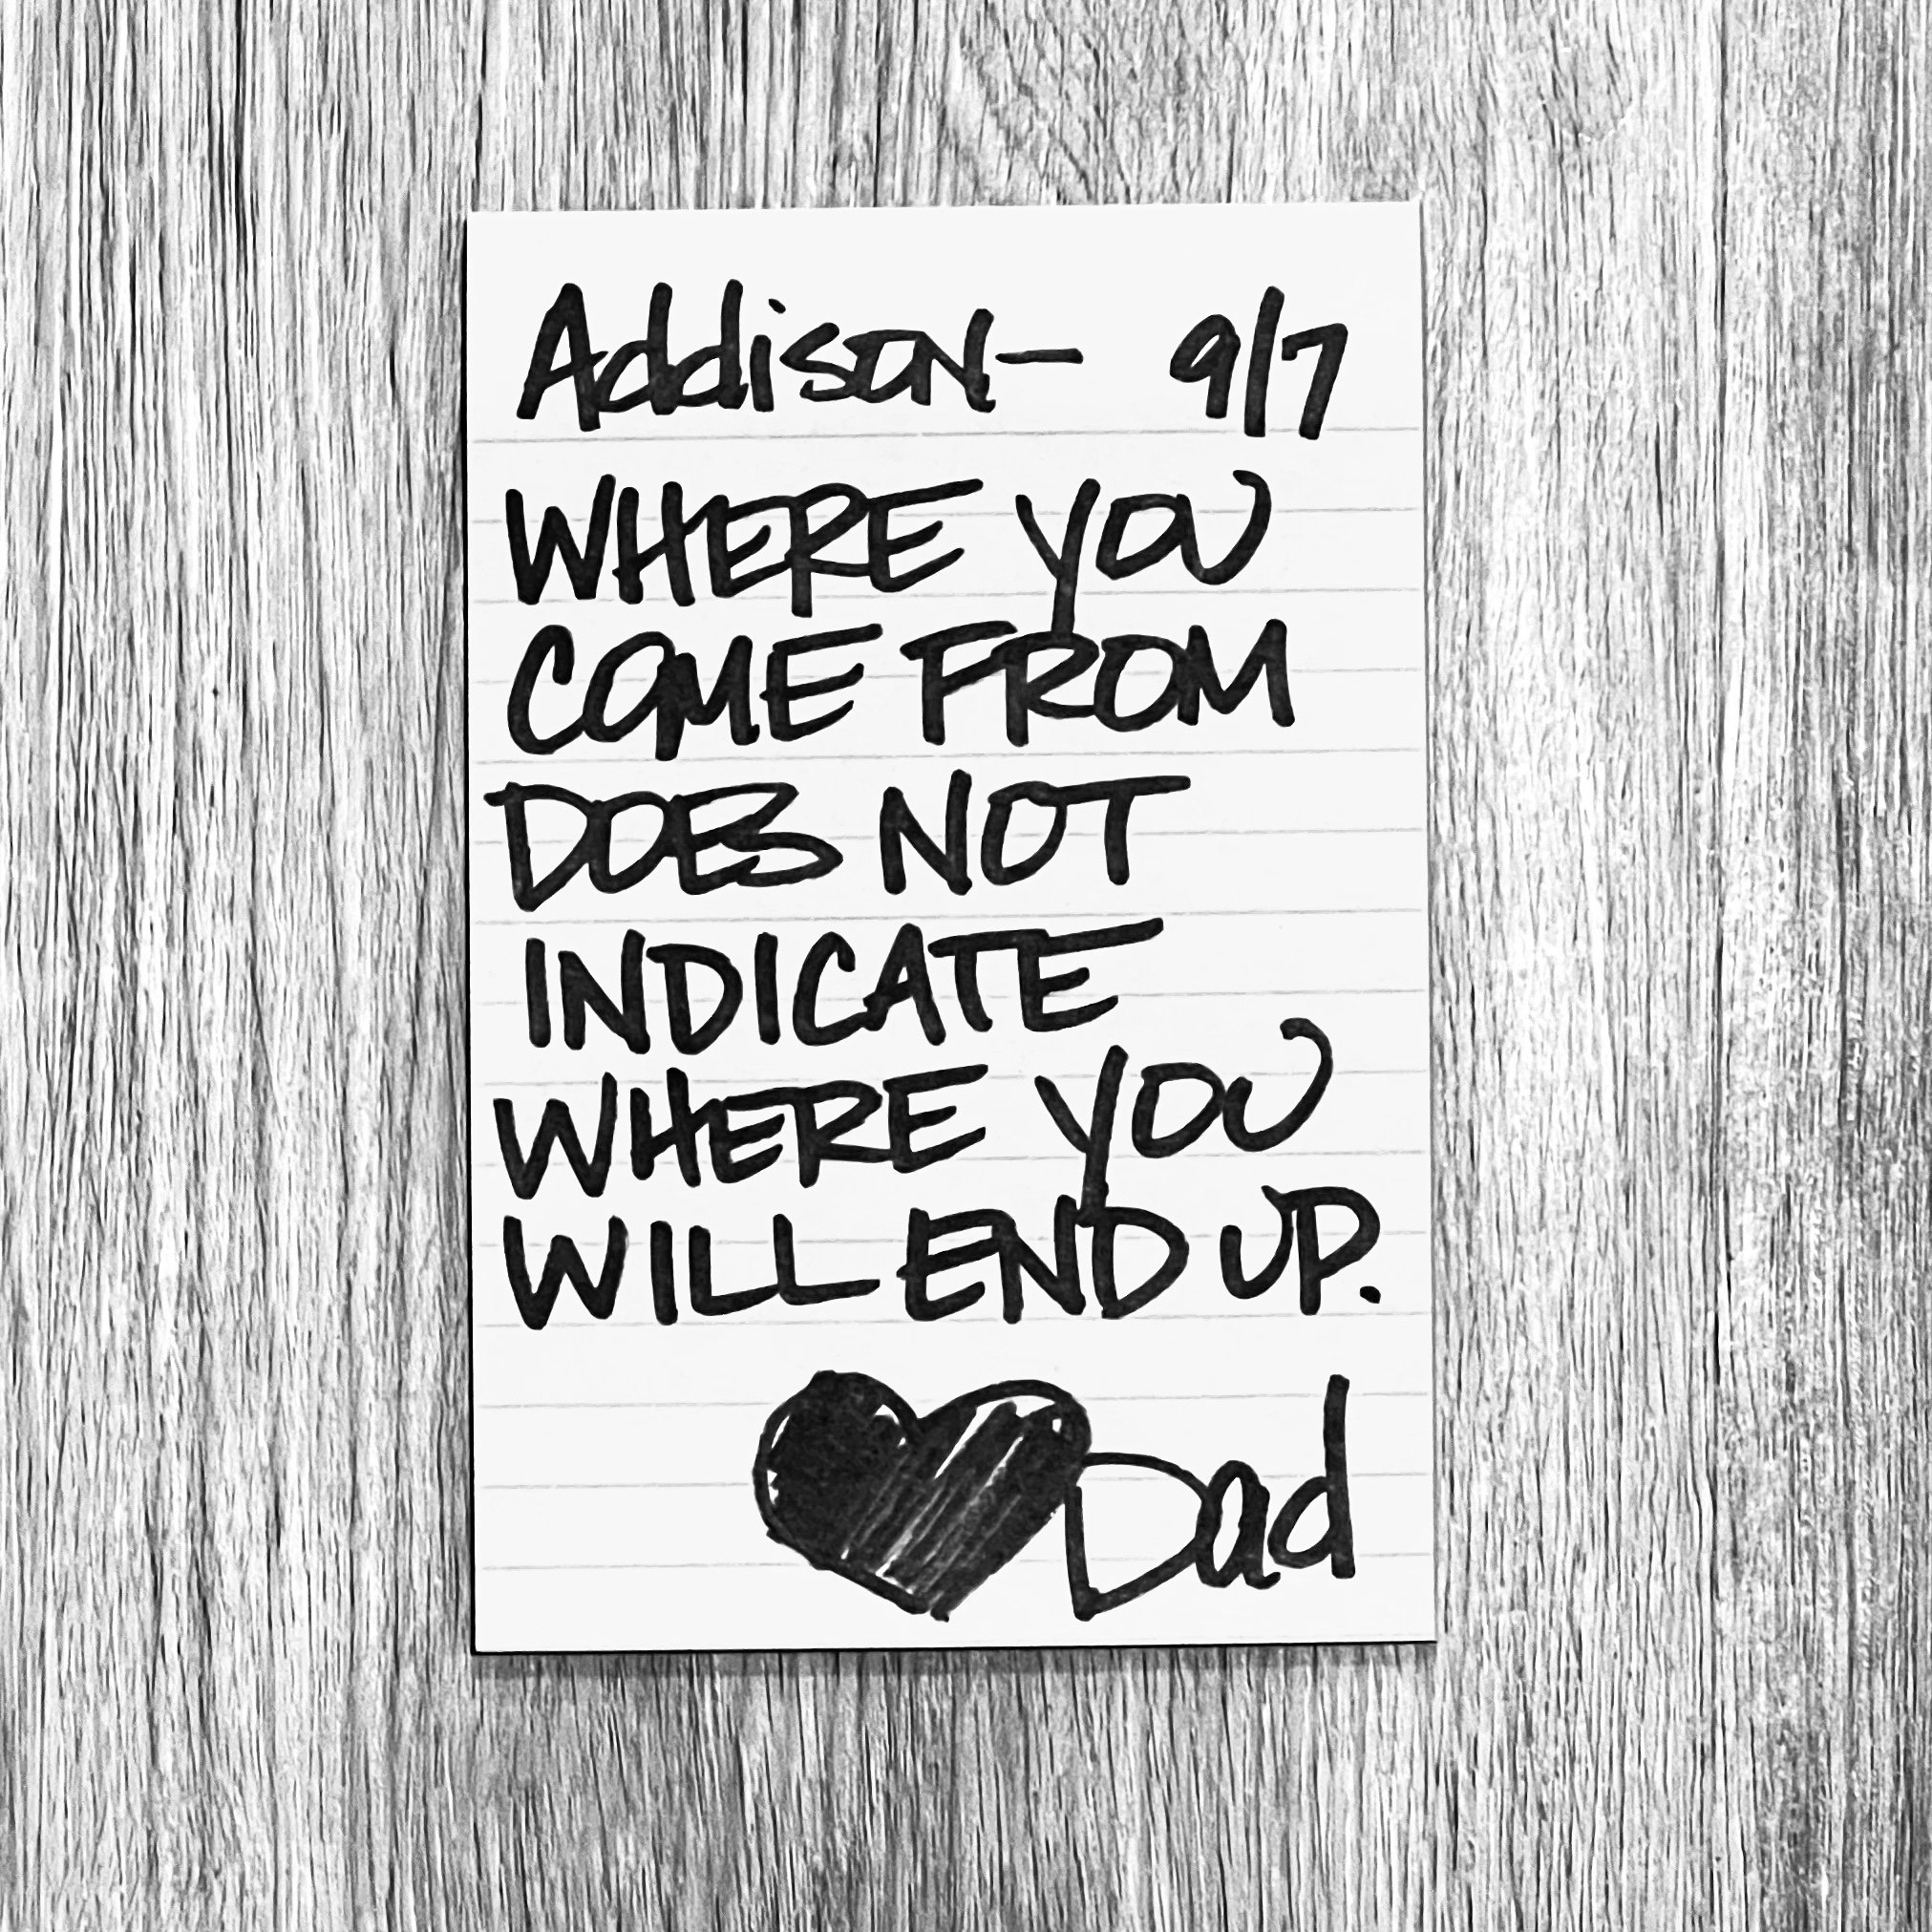 Addison— 9/7
WHERE YOU
COME FROM
DOES NOT
INDICATE
WHERE YOU
WILL END UP.
Dad